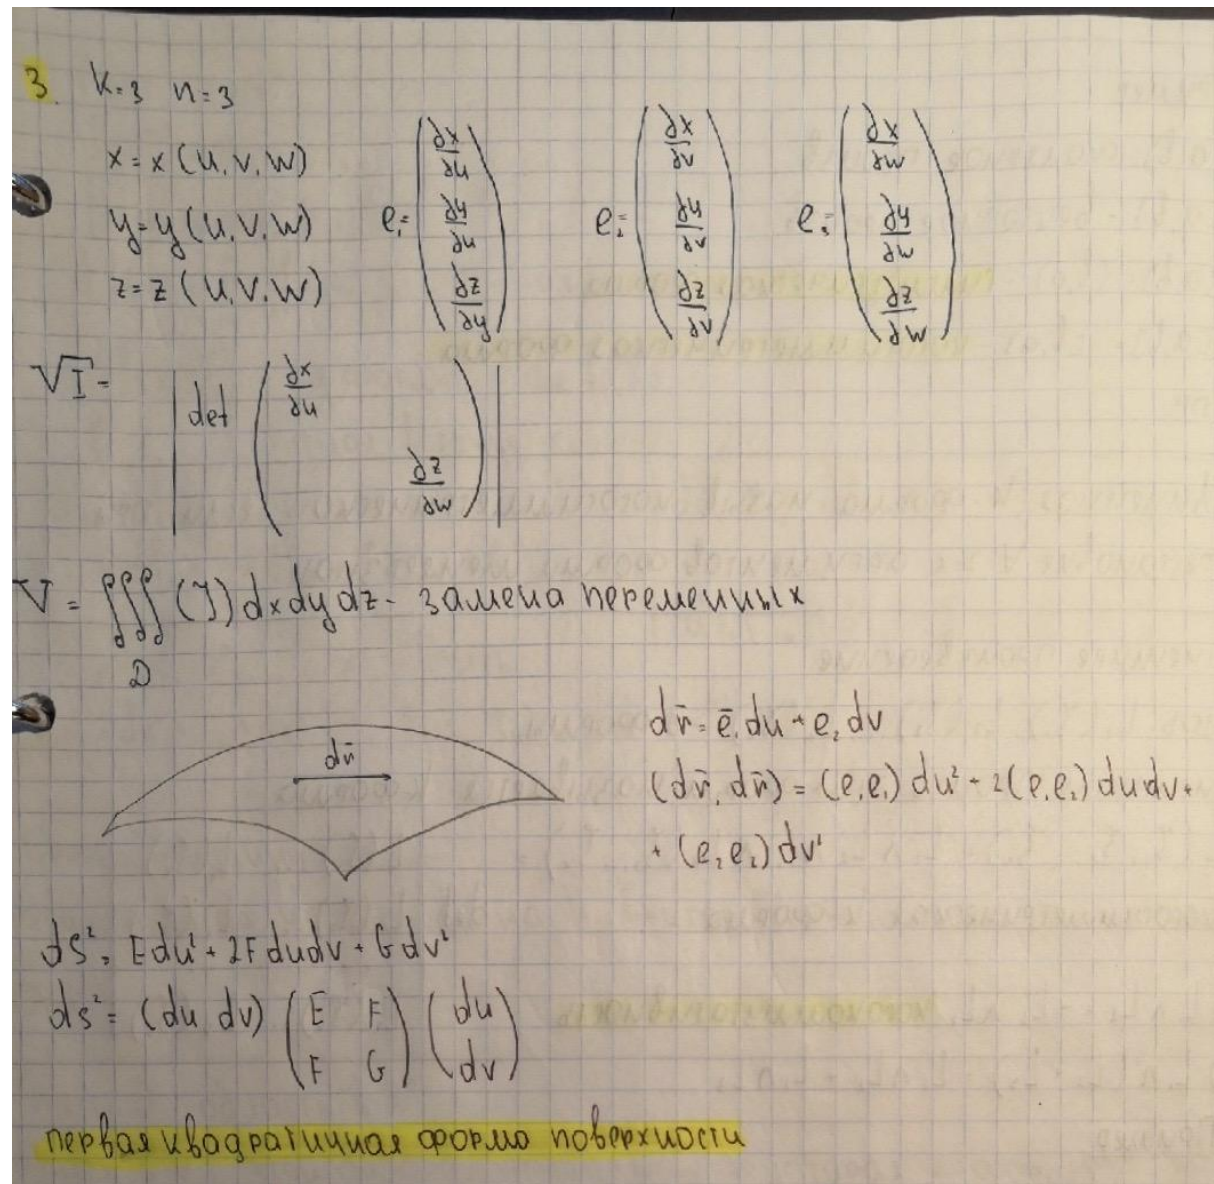 3. k=3 n=3
x = x (u, v, w)
y = y (u, v, w)
z = z (u, v, w)
e₁ = (∂x/∂u ∂y/∂u ∂z/∂y) e₂ = (∂x/∂v ∂y/∂v ∂z/∂v) e₃ = (∂x/∂w ∂y/∂w ∂z/∂w)
√I = |det (∂x/∂u ∂z/∂w)|
V = ∭ (J) dx dy dz - замена переменных
D
dr̄
dr̄ = ē₁ du + e₂ dv
(dr̄, dr̄) = (e₁e₁) du² + 2(e₁e₂) du dv +
+ (e₂e₂) dv²
ds² = E du² + 2F du dv + G dv²
ds² = (du dv) (E F F G) (du dv)
первая квадратичная формо поверхности